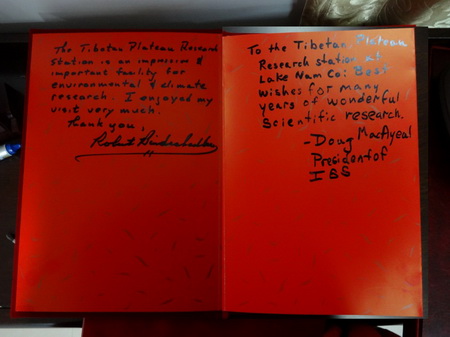 The Tibetan Plateau Research
Station is an impressive &
important facility for
environmental & climate
research. I enjoyed my
visit very much.
Thank you.
Robert
To the Tibetan Plateau
Research station at
Lake Nam Co: Best
wishes for many
years of wonderful
Scientific research.
-Doug MacAyeal
President of
IGS